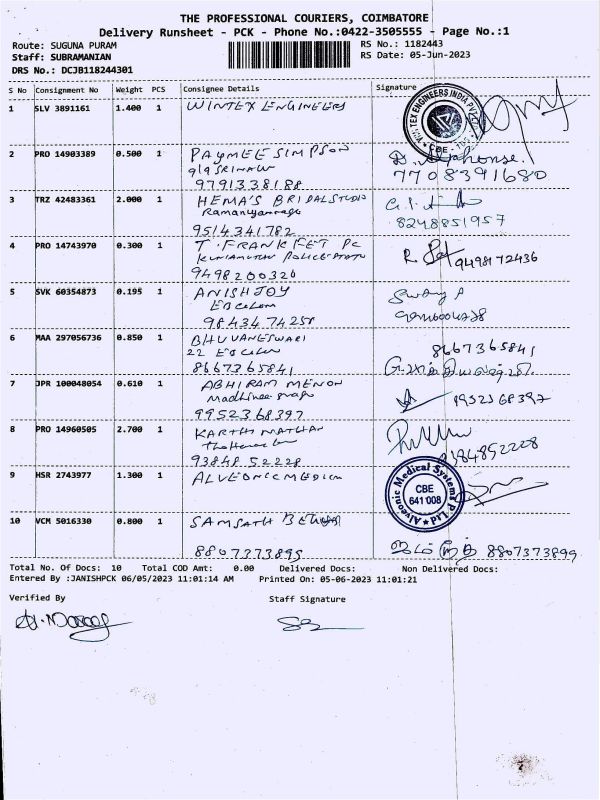 THE PROFESSIONAL COURIERS, COIMBATORE
Delivery Runsheet - PCK - Phone No.:0422-3505555 - Page No.:1
Route: SUGUNA PURAM
RS No.: 1182443
Staff: SUBRAMANIAN
RS Date: 05-Jun-2023
DRS No.: DCJB118244301
S No Consignment No Weight PCS Consignee Details Signature
1 SLV 3891161 1.400 1 WINTEX ENGINEERS
TEX ENGINEERS INDIA PVT
CBE
2 PRO 14903389 0.500 1 PAYMEE SIMPSON
D. Alphonse.
9791338188
7708391680
3 TRZ 42483361 2.000 1 HEMA'S BRIDAL STUDIO
9514341782
8248851957
4 PRO 14743970 0.300 1 T. FRANKFET PC
R
9498200320
9498172436
5 SVK 60354873 0.195 1 ANISH JOY
9843474258
6 MAA 297056736 0.850 1 BHUVANESWARI
22
8667365841
8667365841
7 JPR 100048054 0.610 1 ABHIRAM MENON
9952368397
8 PRO 14960505 2.700 1 KARTHI NATHAN
9384852228
9384852228
9 HSR 2743977 1.300 1 ALVEONIC MEDICAL
Alveonic Medical Systems P Ltd
CBE
641 008
10 VCM 5016330 0.800 1 SAMSATH BEGUM
8807373899
8807373899
Total No. Of Docs: 10 Total COD Amt: 0.00 Delivered Docs: Non Delivered Docs:
Entered By :JANISHPCK 06/05/2023 11:01:14 AM Printed On: 05-06-2023 11:01:21
Verified By
Staff Signature